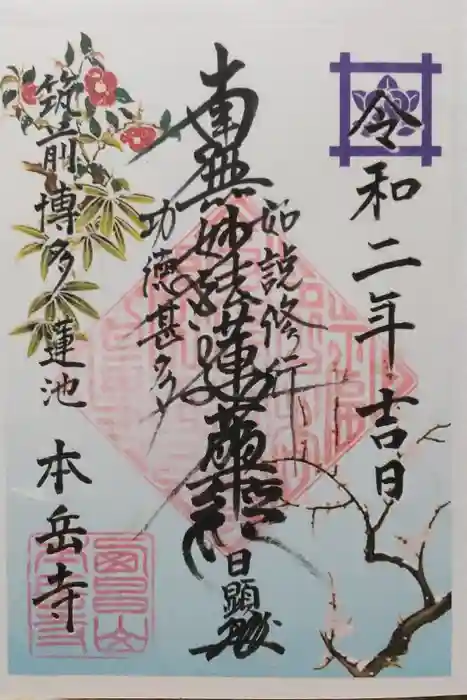 令和二年吉日
如説修行
南無妙法蓮華経
日顕
功徳甚多
筑前博多蓮池
本岳寺